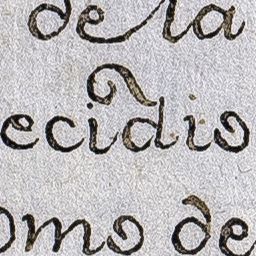 de la
ecidio
omo de